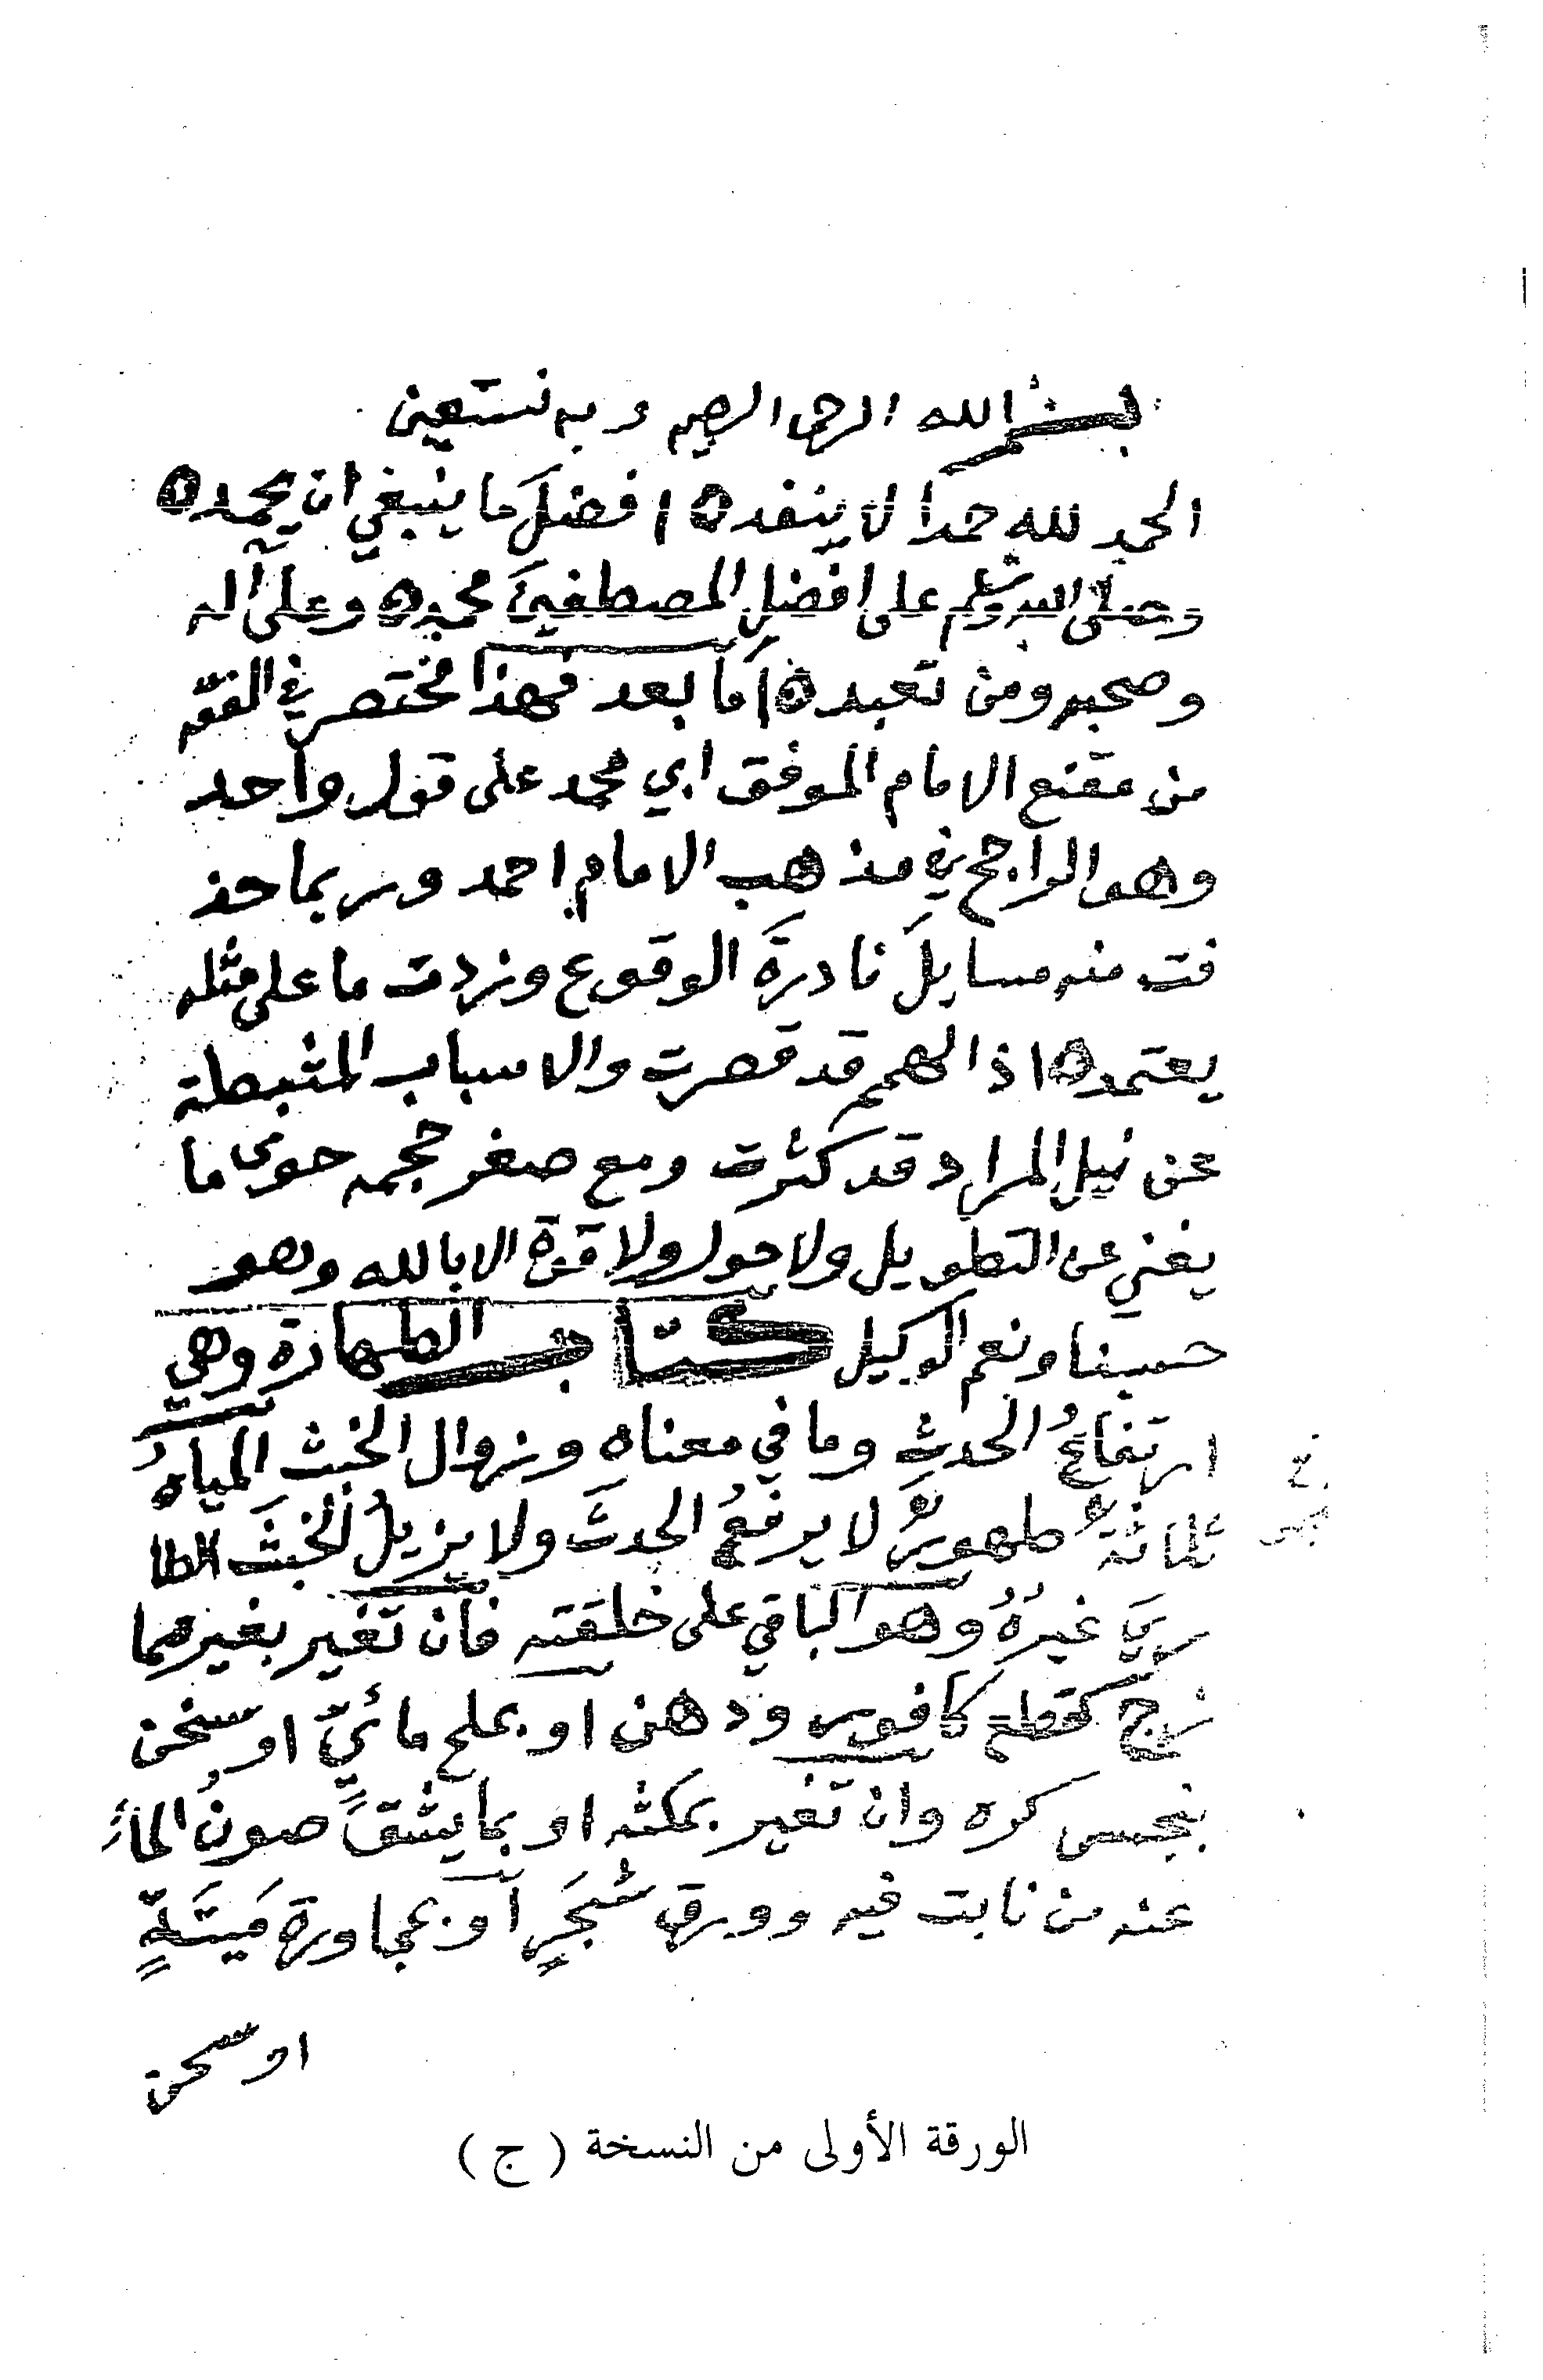 بسم الله الرحمن الرحيم وبه نستعين
الحمد لله حمدا لا ينفد ه افضل ما ينبغي ان يحمد ه
وصلى الله وسلم على افضل المصطفين محمد ه وعلى آله
وصحبه ومن تعبد ه اما بعد فهذا مختصر في الفقه
من مقنع الامام الموفق ابي محمد على قول واحد
وهو الراجح في مذهب الامام احمد وربما حذ
فت منه مسايل نادرة الوقوع وزدت ما على مثله
يعتمد ه اذ الهمم قد قصرت والاسباب المثبطة
عن نيل المراد قد كثرت ومع صغر حجمه حوى ما
يغني عن التطويل ولا حول ولا قوة الا بالله وهو
حسبنا ونعم الوكيل كتاب الطهارة وهي
ارتفاعُ الحدثِ وما في معناه وزوال الخبث المياهُ
ثلاثةٌ طهورٌ لا يرفعُ الحدثَ ولا يزيلُ الخبثَ الطا
ريَ غيرُهُ وهو الباقي على خلقته فان تغير بغير مما
زج كقطع كافور ودهن او بملح مائيٍّ او سخن
بنجس كره وان تغير بمكثه او بما يشقّ صونُ الماءِ
عنه من نابت فيه وورق شجَرٍ او بمجاورة مَيتَةٍ
او سخن
الورقة الأولى من النسخة ( ج )